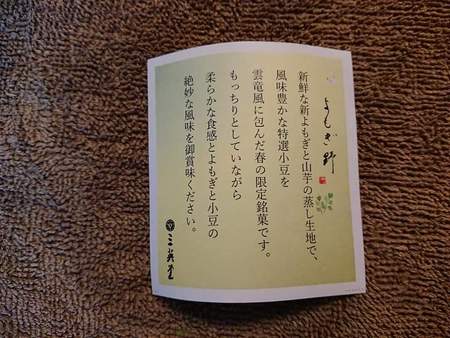 よもぎ野
新鮮な新よもぎと山芋の蒸し生地で、
風味豊かな特選小豆を
雲竜風に包んだ春の限定銘菓です。
もっちりとしていながら
柔らかな食感とよもぎと小豆の
絶妙な風味を御賞味ください。
三英堂